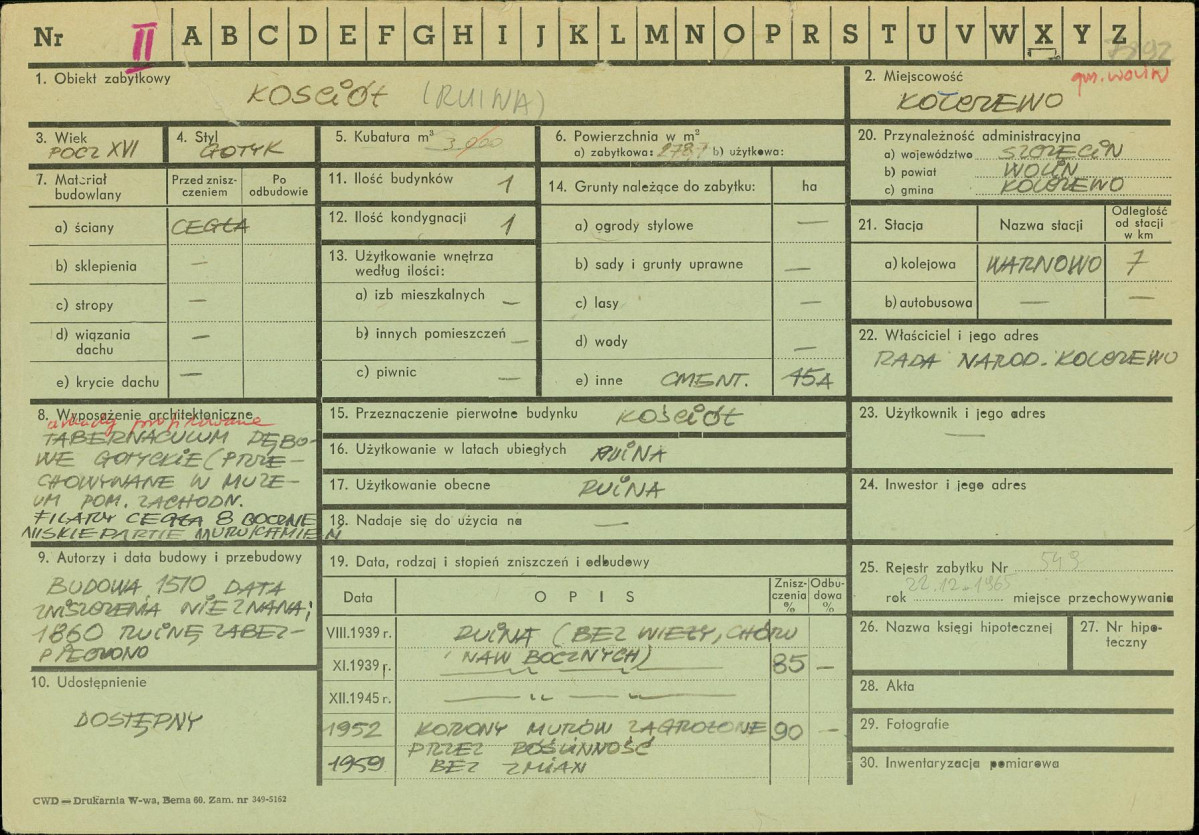 Nr II A B C D E F G H I J K L M N O P R S T U V W X Y Z
1. Obiekt zabytkowy
KOSCIÓŁ (RUINA)
2. Miejscowość
gm. WOLIN
KOŁCZEWO
3. Wiek
POCZ XVI
4. Styl
GOTYK
5. Kubatura m³
6. Powierzchnia w m²
a) zabytkowa: 278,7 b) użytkowa:
20. Przynależność administracyjna
a) województwo SZCZECIN
b) powiat WOLIN
c) gmina KOLCZEWO
7. Materiał budowlany
Przed zniszczeniem
Po odbudowie
a) ściany CEGŁA
b) sklepienia —
c) stropy —
d) wiązania dachu —
e) krycie dachu —
11. Ilość budynków 1
12. Ilość kondygnacji 1
13. Użytkowanie wnętrza
według ilości:
a) izb mieszkalnych —
b) innych pomieszczeń —
c) piwnic —
14. Grunty należące do zabytku: ha
a) ogrody stylowe —
b) sady i grunty uprawne —
c) lasy —
d) wody —
e) inne CMENT. 45A
21. Stacja
Nazwa stacji
Odległość
od stacji
w km
a) kolejowa WARNOWO 7
b) autobusowa — —
22. Właściciel i jego adres
RADA NAROD. KOLCZEWO
8. Wyposażenie architektoniczne
arkady profilowane
TABERNACULUM DĘBO-
WE GOTYCKIE (PRZE-
CHOWYWANE W MUZE-
UM POM. ZACHODN.
FILARY CEGŁA 8 BOCZNE
NISKIE PARTIE MURU KAMIEŃ
15. Przeznaczenie pierwotne budynku KOŚCIÓŁ
16. Użytkowanie w latach ubiegłych RUINA
17. Użytkowanie obecne RUINA
18. Nadaje się do użycia na —
23. Użytkownik i jego adres
—
24. Inwestor i jego adres
9. Autorzy i data budowy i przebudowy
BUDOWA 1510, DATA
ZNISZCZENIA NIEZNANA;
1860 RUINĘ ZABEZ-
PIECZONO
10. Udostępnienie
DOSTĘPNY
19. Data, rodzaj i stopień zniszczeń i odbudowy
Data
OPIS
Zniszczenia %
Odbudowa %
VIII.1939 r. RUINA (BEZ WIEŻY, CHÓRU
XI.1939 r. NAW BOCZNYCH) 85 —
XII.1945 r. — " —
1952 KORONY MURÓW ZAGROŻONE 90 —
PRZEZ ROŚLINNOŚĆ
1959 BEZ ZMIAN
25. Rejestr zabytku Nr 549
22.12.1965
rok miejsce przechowywania
26. Nazwa księgi hipotecznej
27. Nr hipoteczny
28. Akta
29. Fotografie
30. Inwentaryzacja pomiarowa
CWD — Drukarnia W-wa, Bema 60. Zam. nr 349-5162